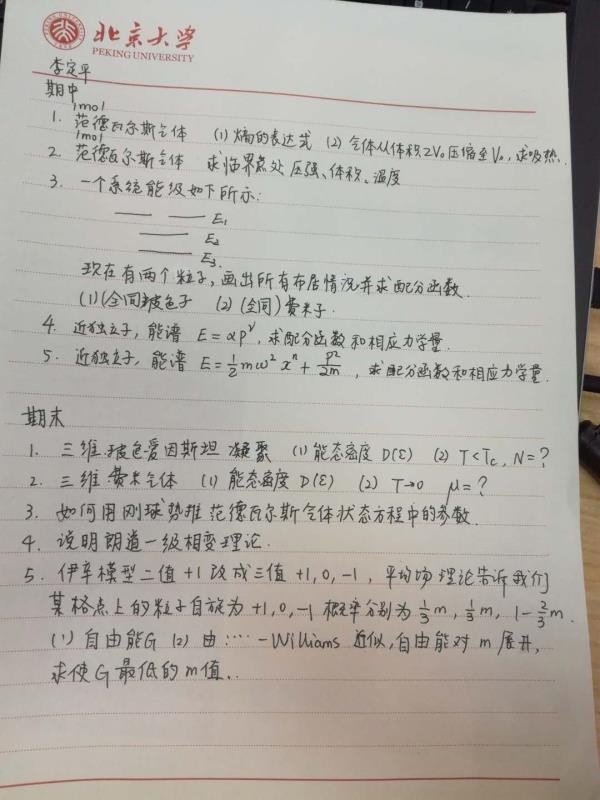 北京大学
PEKING UNIVERSITY
李定平
期中
1mol
1. 范德瓦尔斯气体 (1) 熵的表达式 (2) 气体从体积2V₀压缩至V₀, 求吸热.
1mol
2. 范德瓦尔斯气体 求临界点处压强、体积、温度
3. 一个系统能级如下所示:
E₁
E₂
E₃
现在有两个粒子, 画出所有布居情况并求配分函数.
(1) (全同)玻色子 (2) (全同)费米子.
4. 近独立子, 能谱 E = αp^ν, 求配分函数和相应力学量.
5. 近独立子, 能谱 E = ½mω²xⁿ + p²/2m, 求配分函数和相应力学量.
期末
1. 三维玻色爱因斯坦凝聚 (1) 能态密度 D(ε) (2) T<Tc, N=?
2. 三维费米气体 (1) 能态密度 D(ε) (2) T→0 μ=?
3. 如何用刚球势推范德瓦尔斯气体状态方程中的参数.
4. 说明朗道一级相变理论.
5. 伊辛模型二值±1改成三值+1,0,-1, 平均场理论告诉我们
某格点上的粒子自旋为+1,0,-1概率分别为⅓m, ⅓m, 1-⅔m.
(1) 自由能G (2) 由……-Williams近似, 自由能对m展开,
求使G最低的m值.